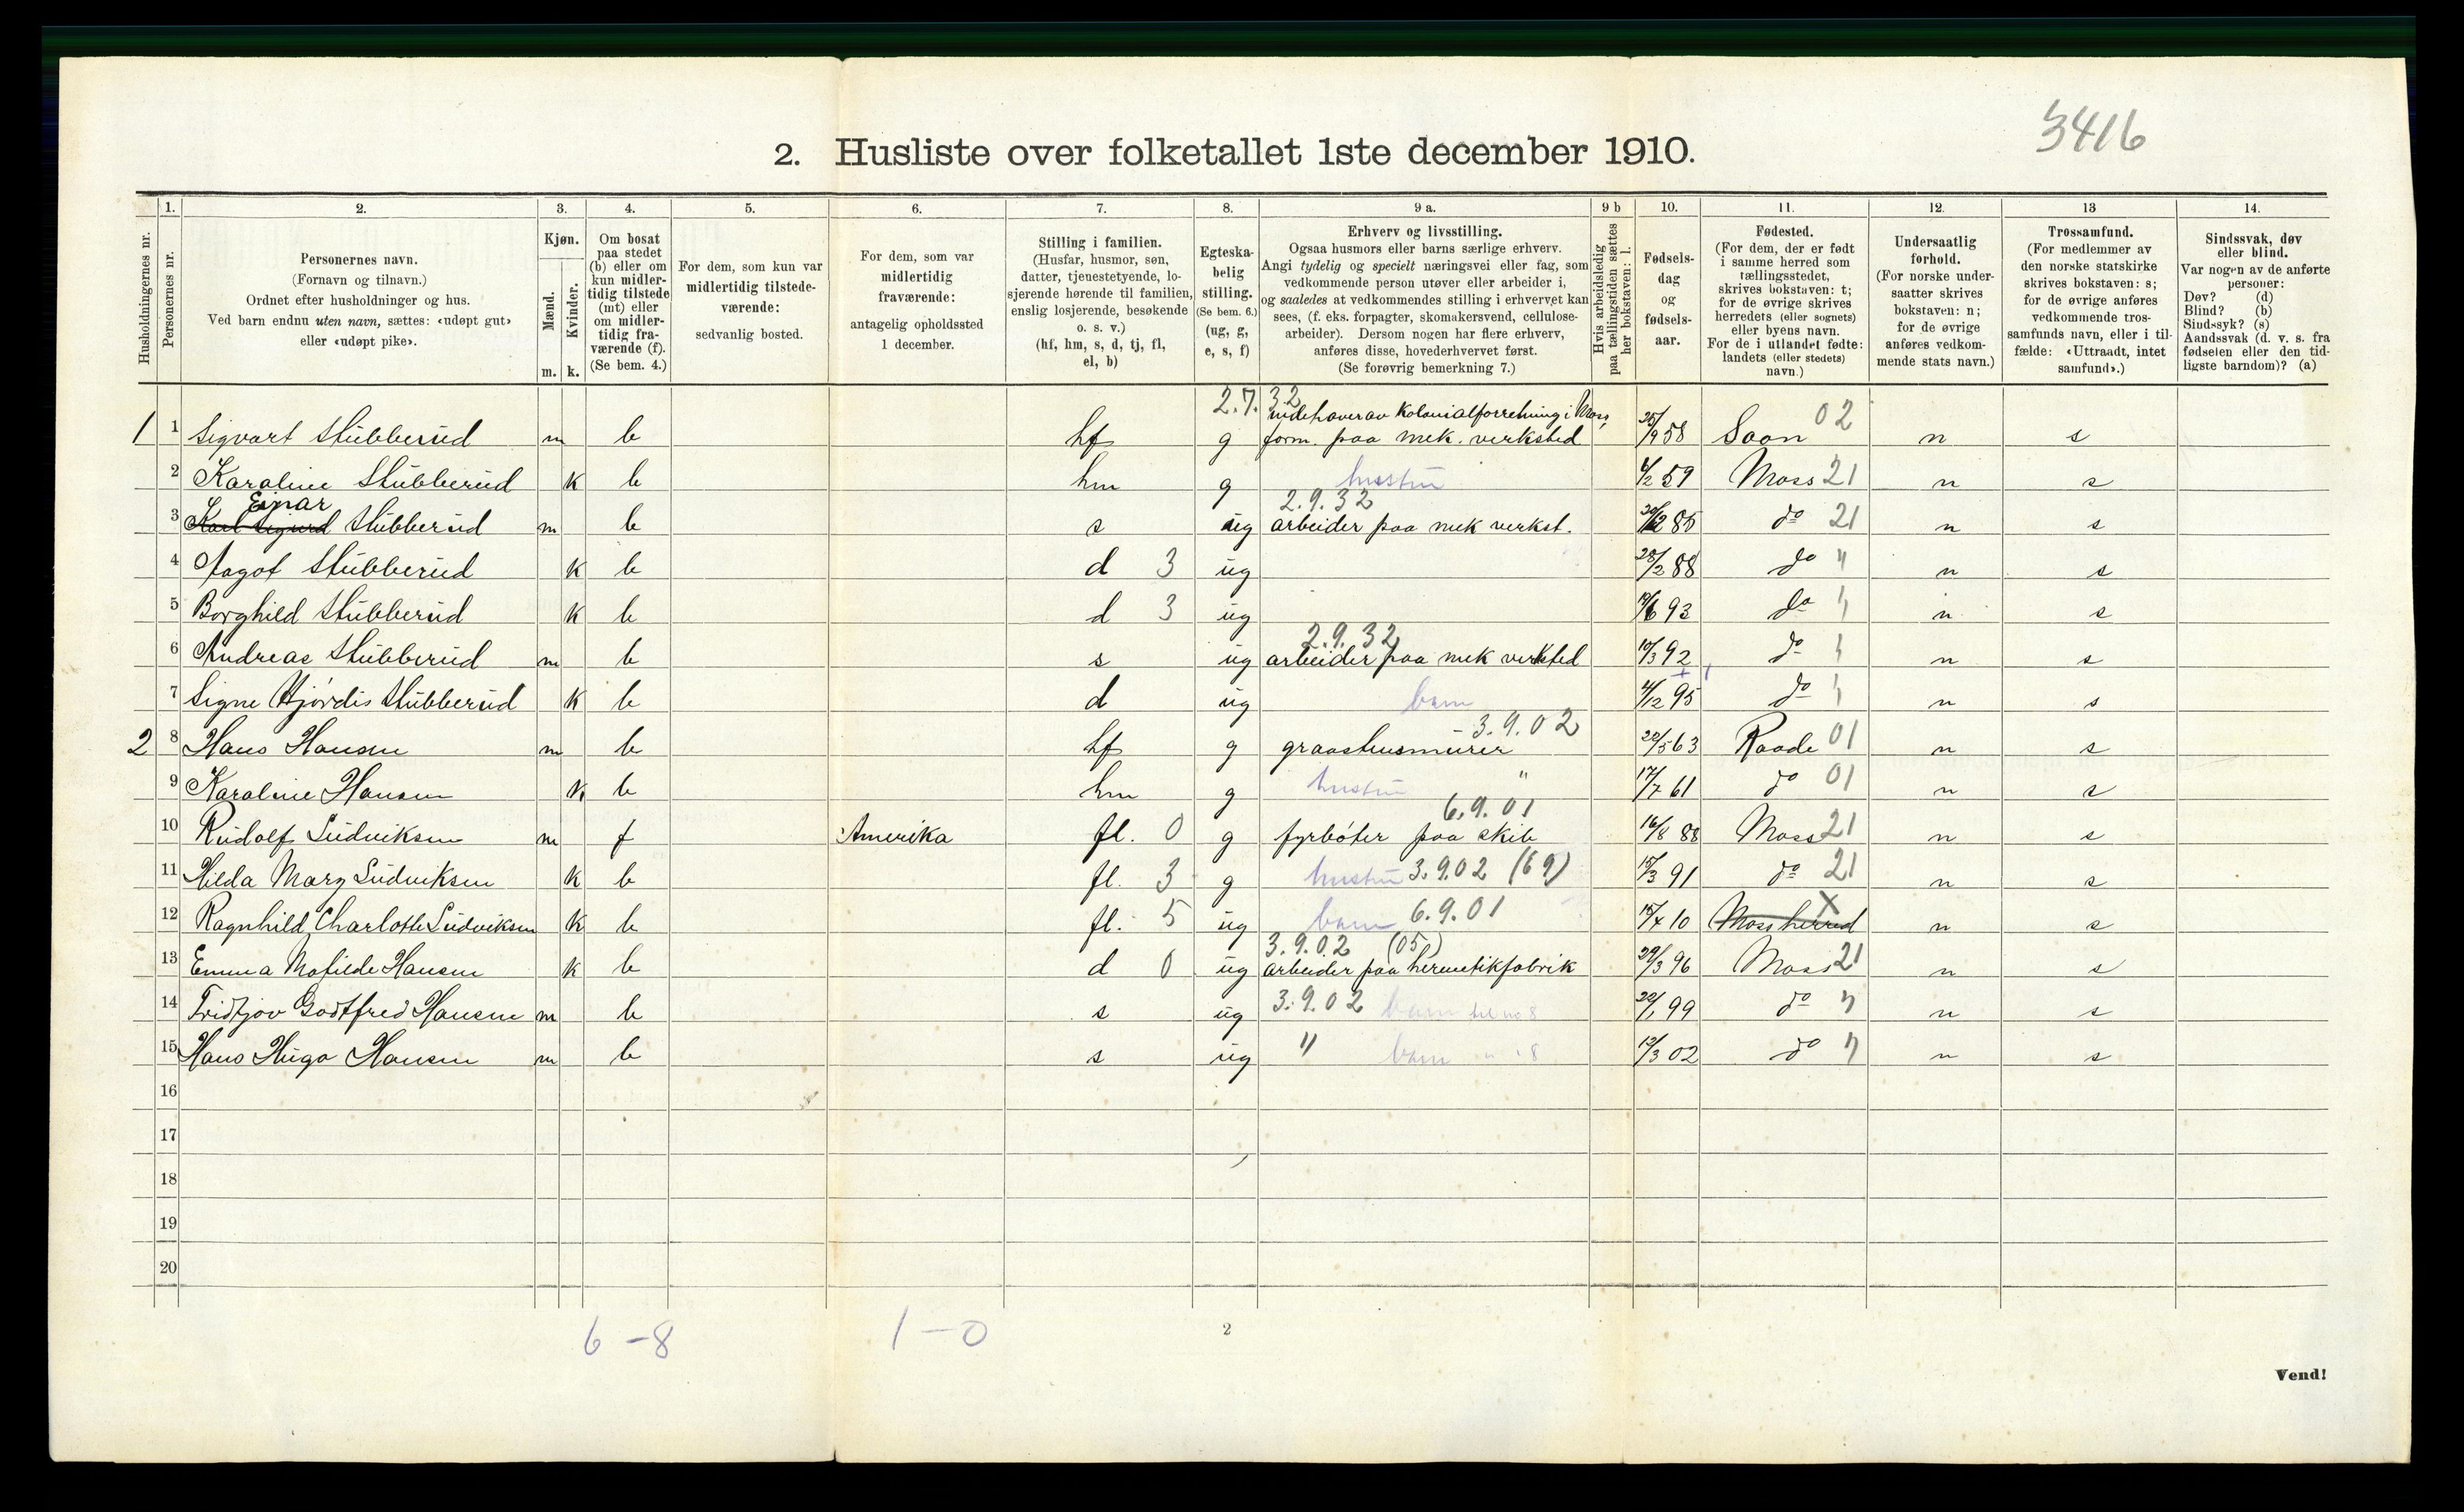 3416
2. Husliste over folketallet 1ste december 1910.
1. 2. 3. 4. 5. 6. 7. 8. 9 a. 9 b 10. 11. 12. 13 14.
Husholdningernes nr.
Personernes nr.
Personernes navn.
(Fornavn og tilnavn.)
Ordnet efter husholdninger og hus.
Ved barn endnu uten navn, sættes: «udøpt gut»
eller «udøpt pike».
Kjøn.
Mænd.
Kvinder.
m. k.
Om bosat
paa stedet
(b) eller om
kun midler-
tidig tilstede
(mt) eller
om midler-
tidig fra-
værende (f).
(Se bem. 4.)
For dem, som kun var
midlertidig tilstede-
værende:
sedvanlig bosted.
For dem, som var
midlertidig
fraværende:
antagelig opholdssted
1 december.
Stilling i familien.
(Husfar, husmor, søn,
datter, tjenestetyende, lo-
sjerende hørende til familien,
enslig losjerende, besøkende
o. s. v.)
(hf, hm, s, d, tj, fl,
el, b)
Egteska-
belig
stilling.
(Se bem. 6.)
(ug, g,
e, s, f)
Erhverv og livsstilling.
Ogsaa husmors eller barns særlige erhverv.
Angi tydelig og specielt næringsvei eller fag, som
vedkommende person utøver eller arbeider i,
og saaledes at vedkommendes stilling i erhvervet kan
sees, (f. eks. forpagter, skomakersvend, cellulose-
arbeider). Dersom nogen har flere erhverv,
anføres disse, hovederhvervet først.
(Se forøvrig bemerkning 7.)
Hvis arbeidsledig
paa tællingstiden sættes
her bokstaven: l.
Fødsels-
dag
og
fødsels-
aar.
Fødested.
(For dem, der er født
i samme herred som
tællingsstedet,
skrives bokstaven: t;
for de øvrige skrives
herredets (eller sognets)
eller byens navn.
For de i utlandet fødte:
landets (eller stedets)
navn.)
Undersaatlig
forhold.
(For norske under-
saatter skrives
bokstaven: n;
for de øvrige
anføres vedkom-
mende stats navn.)
Trossamfund.
(For medlemmer av
den norske statskirke
skrives bokstaven: s;
for de øvrige anføres
vedkommende tros-
samfunds navn, eller i til-
fælde: «Uttraadt, intet
samfund».)
Sindssvak, døv
eller blind.
Var nogen av de anførte
personer:
Døv? (d)
Blind? (b)
Sindssyk? (s)
Aandssvak (d. v. s. fra
fødselen eller den tid-
ligste barndom)? (a)
2.7.32
indehaver av Kolonialforretning i Moss,
1 1 Sigvart Stubberud m b hf g form. paa mek. verksted 25/9 58 Soon 02 n s
2 Karoline Stubberud k b hm g hustru 4/2 59 Moss 21 n s
Einar 2.9.32
3 Karl Sigurd Stubberud m b s ug arbeider paa mek verkst. 85 do 21 n s
4 Aagot Stubberud k b d 3 ug 28/2 88 do " n s
5 Borghild Stubberud k b d 3 ug 93 do " n s
2.9.32
6 Andreas Stubberud m b s ug arbeider paa mek verksted 10/3 92 do " n s
7 Signe Hjørdis Stubberud k b d ug barn 4/12 95 do " n s
3.9.02
2 8 Hans Hansen m b hf g graastensmurer 20/5 63 Raade 01 n s
9 Karoline Hansen k b hm g hustru " 17/7 61 do 01 n s
6.9.01
10 Rudolf Ludviksen m f Amerika fl. 0 g fyrbøter paa skib 16/8 88 Moss 21 n s
11 Hilda Mary Ludviksen k b fl. 3 g hustru 3.9.02 (69) 15/3 91 do 21 n s
12 Ragnhild Charlotte Ludviksen k b fl. 5 ug barn 6.9.01 10 Moss herred X n s
3.9.02 (05)
13 Emma Matilde Hansen k b d 0 ug arbeider paa hermetikfabrik 29/3 96 Moss 21 n s
14 Fridtjov Godtfred Hansen m b s ug 3.9.02 barn til no 8 22/1 99 do " n s
15 Hans Hugo Hansen m b s ug " barn " " 8 12/3 02 do " n s
16
17
18
19
20
6 - 8 1 - 0
2
Vend!